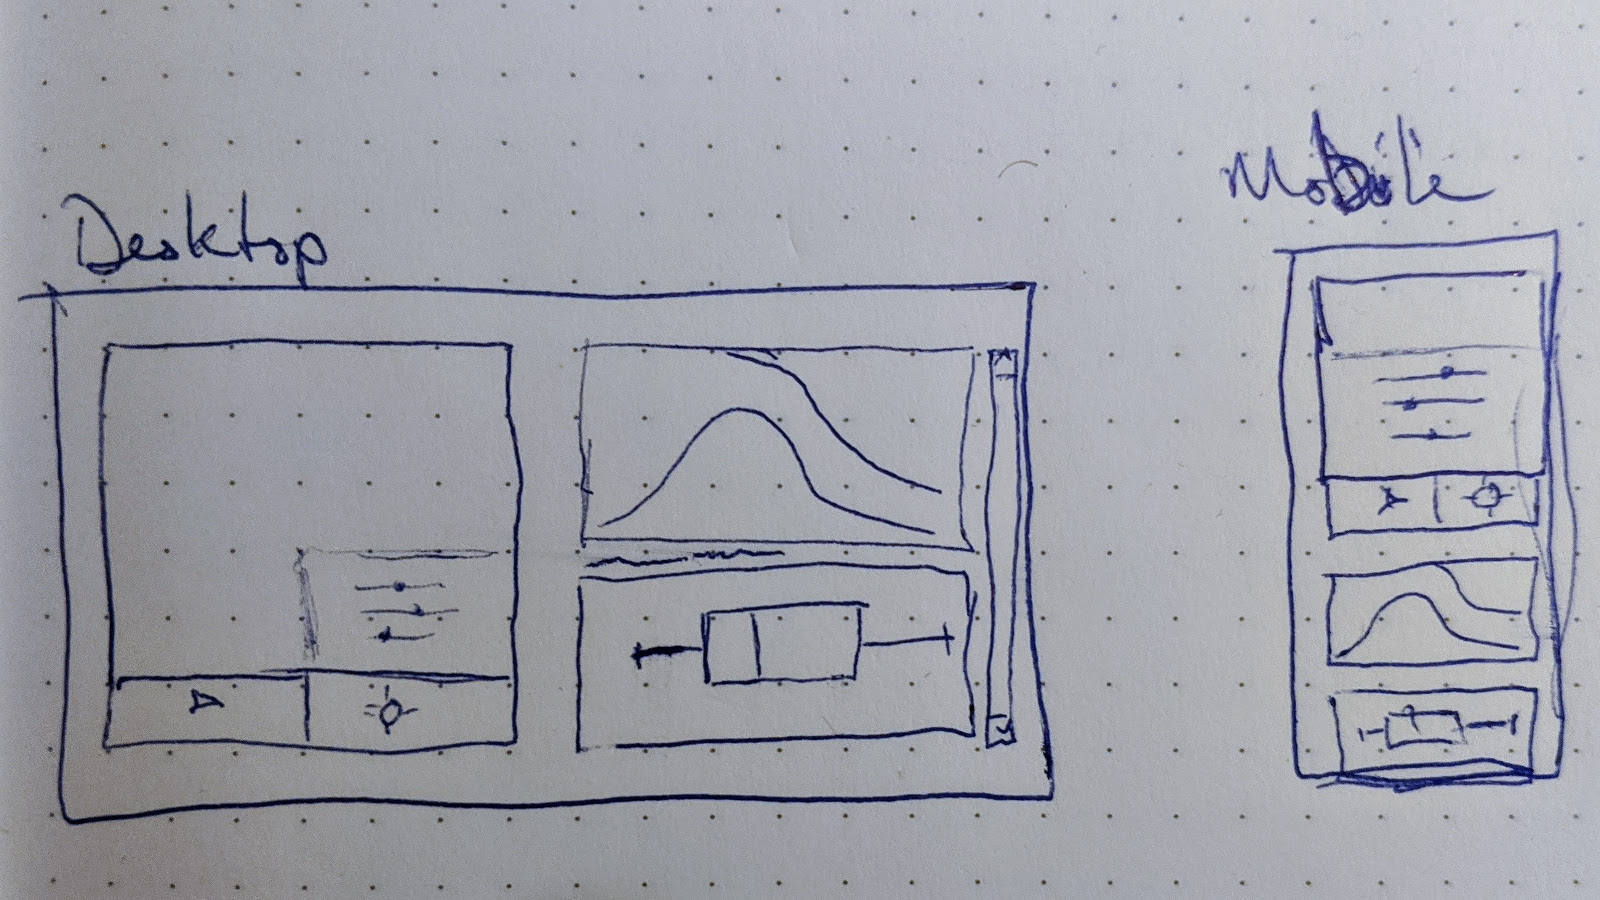 Desktop
Mobile